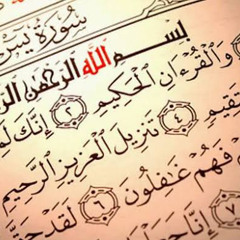 سُورَةُ يسٓ
بِسْمِ اللَّهِ الرَّحْمَٰنِ الر
وَالْقُرْءَانِ الْحَكِيمِ ٢ إِنَّكَ لَم
قِيمٍ ٤ تَنزِيلَ الْعَزِيزِ الرَّحِيمِ
فَهُمْ غَٰفِلُونَ ٦ لَقَدْ حَقَّ
٧ إِنَّا جَعَ